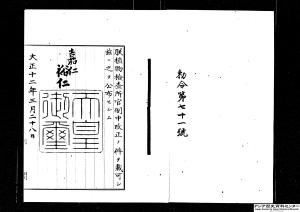 勅令第七十一號
朕植物檢査所官制中改正ノ件ヲ裁可シ
茲ニ之ヲ公布セシム
嘉仁
裕仁
天皇御璽
大正十二年三月二十八日
アジア歴史資料センター